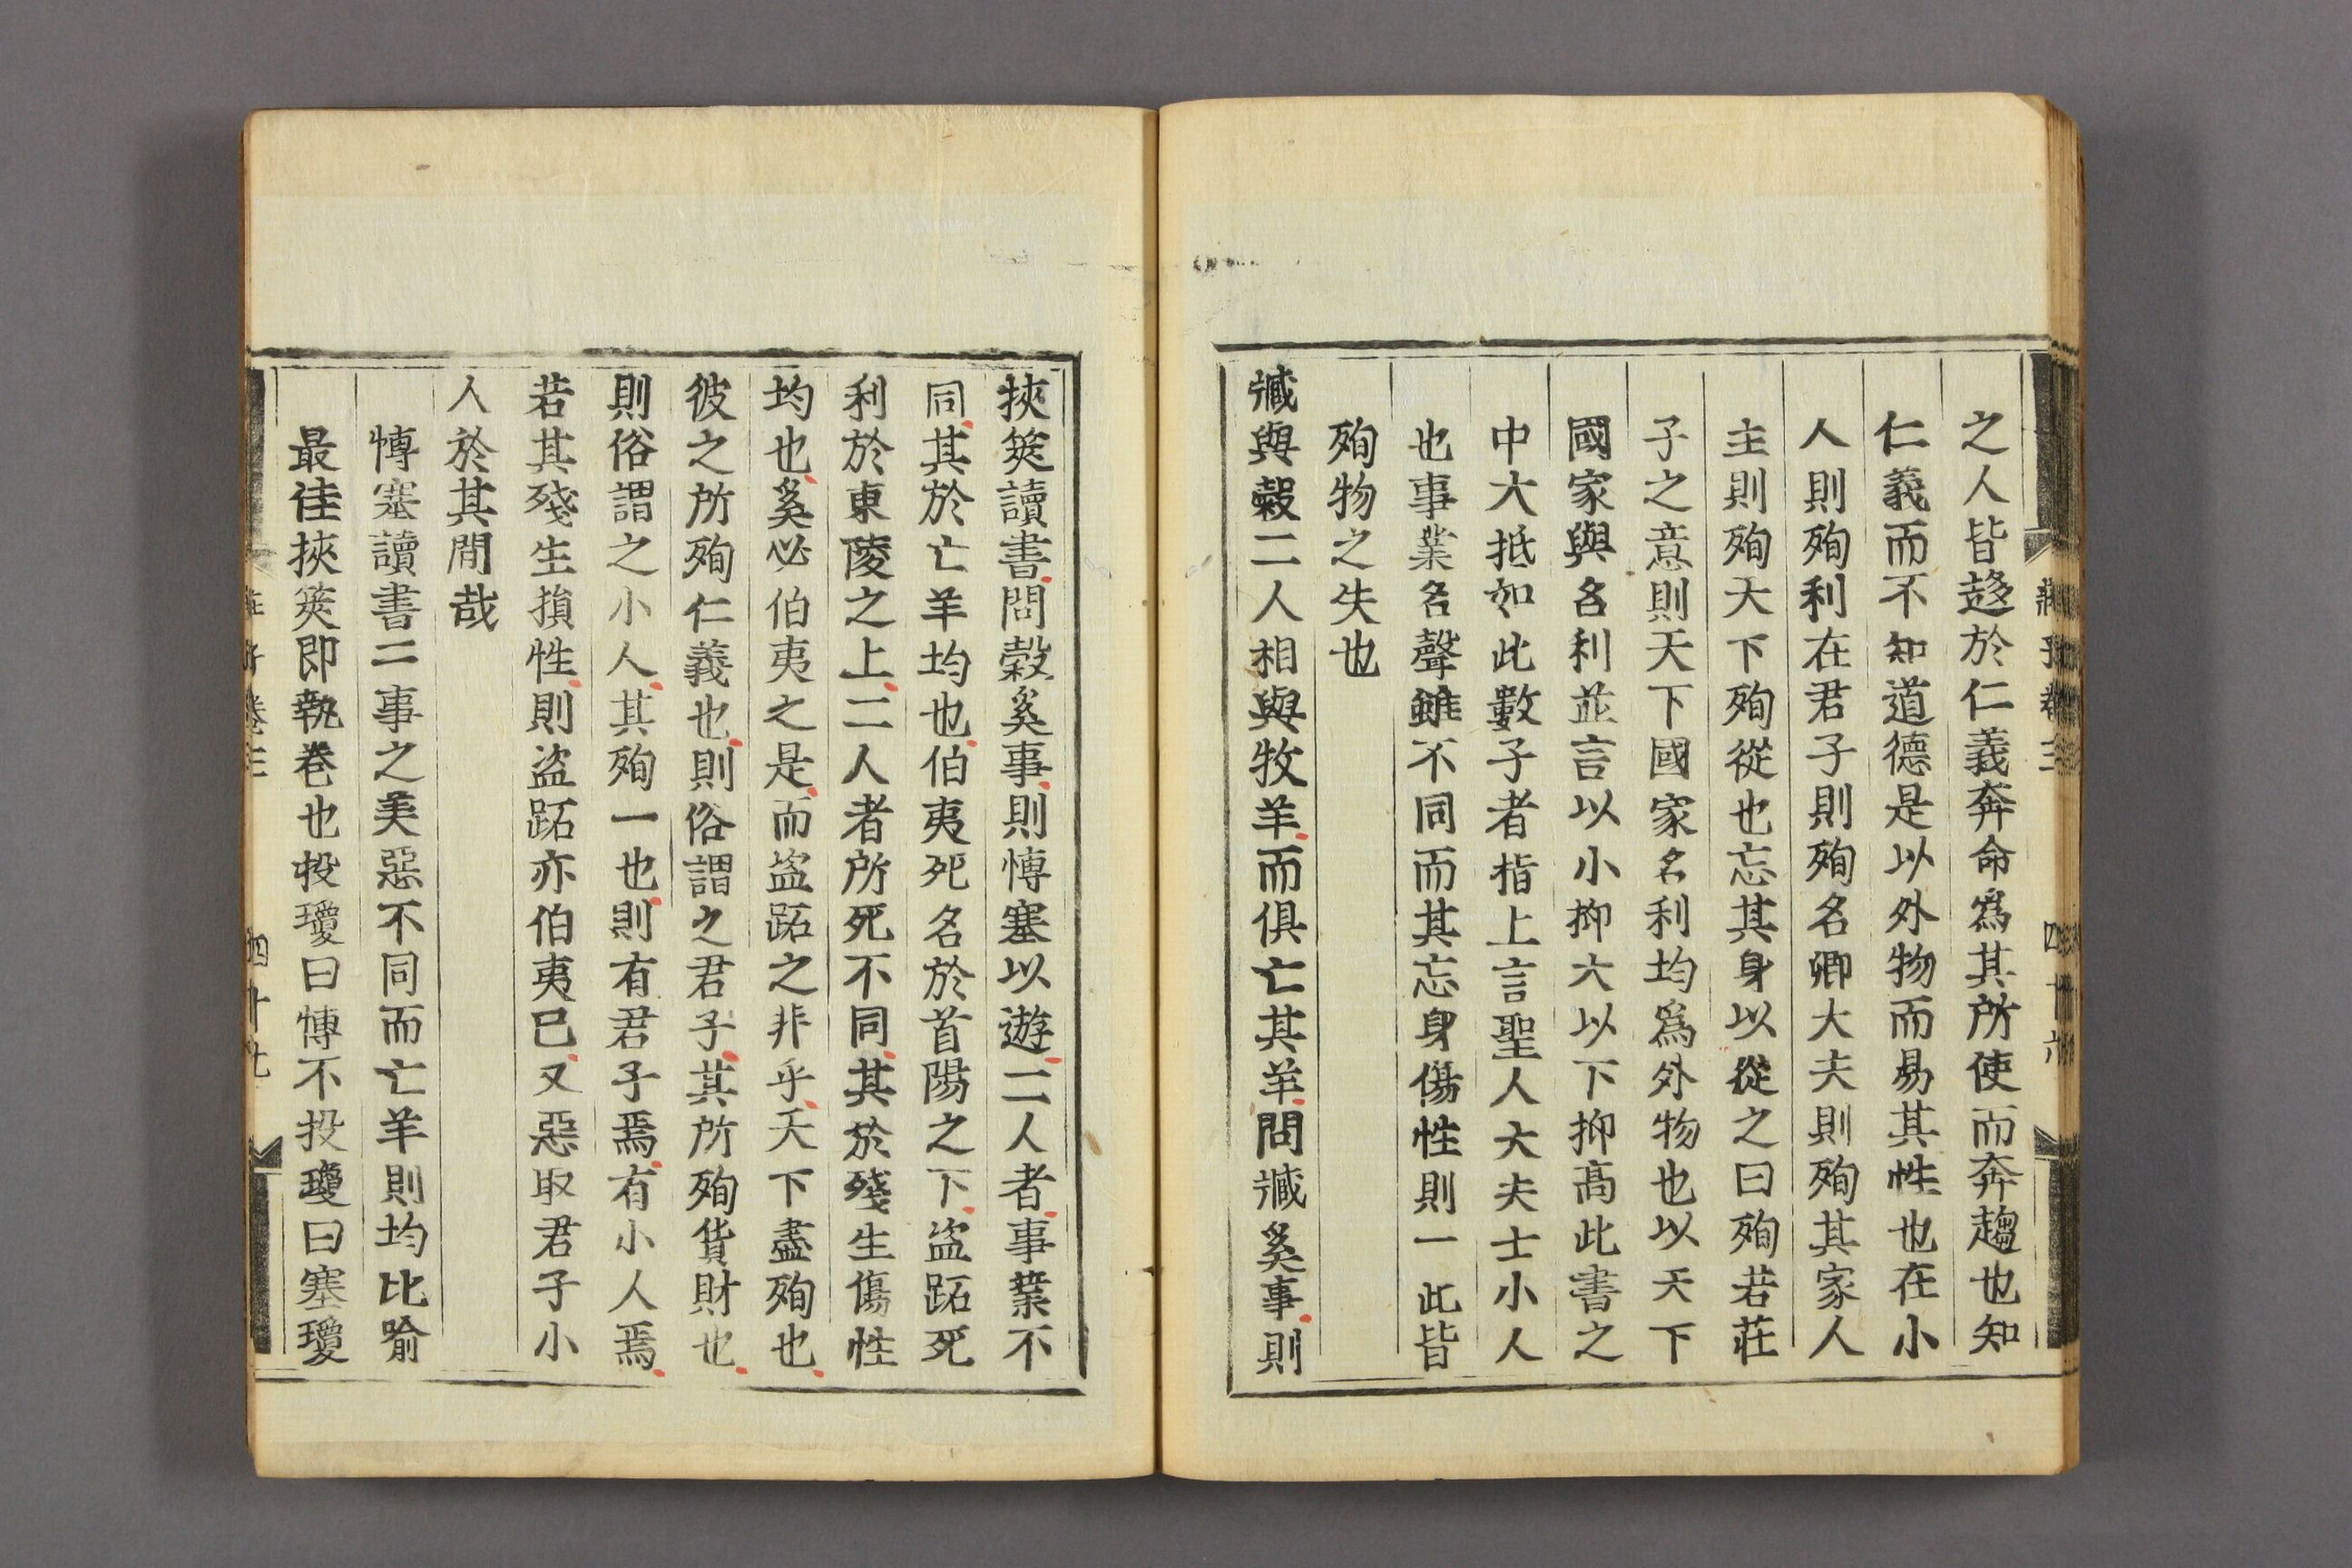 之人皆趍於仁義奔命爲其所使而奔趨也知
仁義而不知道德是以外物而易其性也在小
人則殉利在君子則殉名卿大夫則殉其家人
主則殉天下殉從也忘其身以從之曰殉若莊
子之意則天下國家名利均爲外物也以天下
國家與名利並言以小抑大以下抑高此書之
中大抵如此數子者指上言聖人大夫士小人
也事業名聲雖不同而其忘身傷性則一此皆
殉物之失也
臧與穀二人相與牧羊而俱亡其羊問臧奚事則
挾筴讀書問穀奚事則愽塞以遊二人者事業不
同其於亡羊均也伯夷死名於首陽之下盗跖死
利於東陵之上二人者所死不同其於殘生傷性
均也奚必伯夷之是而盗跖之非乎天下盡殉也
彼之所殉仁義也則俗謂之君子其所殉貨財也
則俗謂之小人其殉一也則有君子焉有小人焉
若其殘生損性則盗跖亦伯夷已又惡取君子小
人於其間哉
愽塞讀書二事之美惡不同而亡羊則均比喻
最佳挾筴即執卷也投瓊曰愽不投瓊曰塞瓊
莊子卷三 四十七